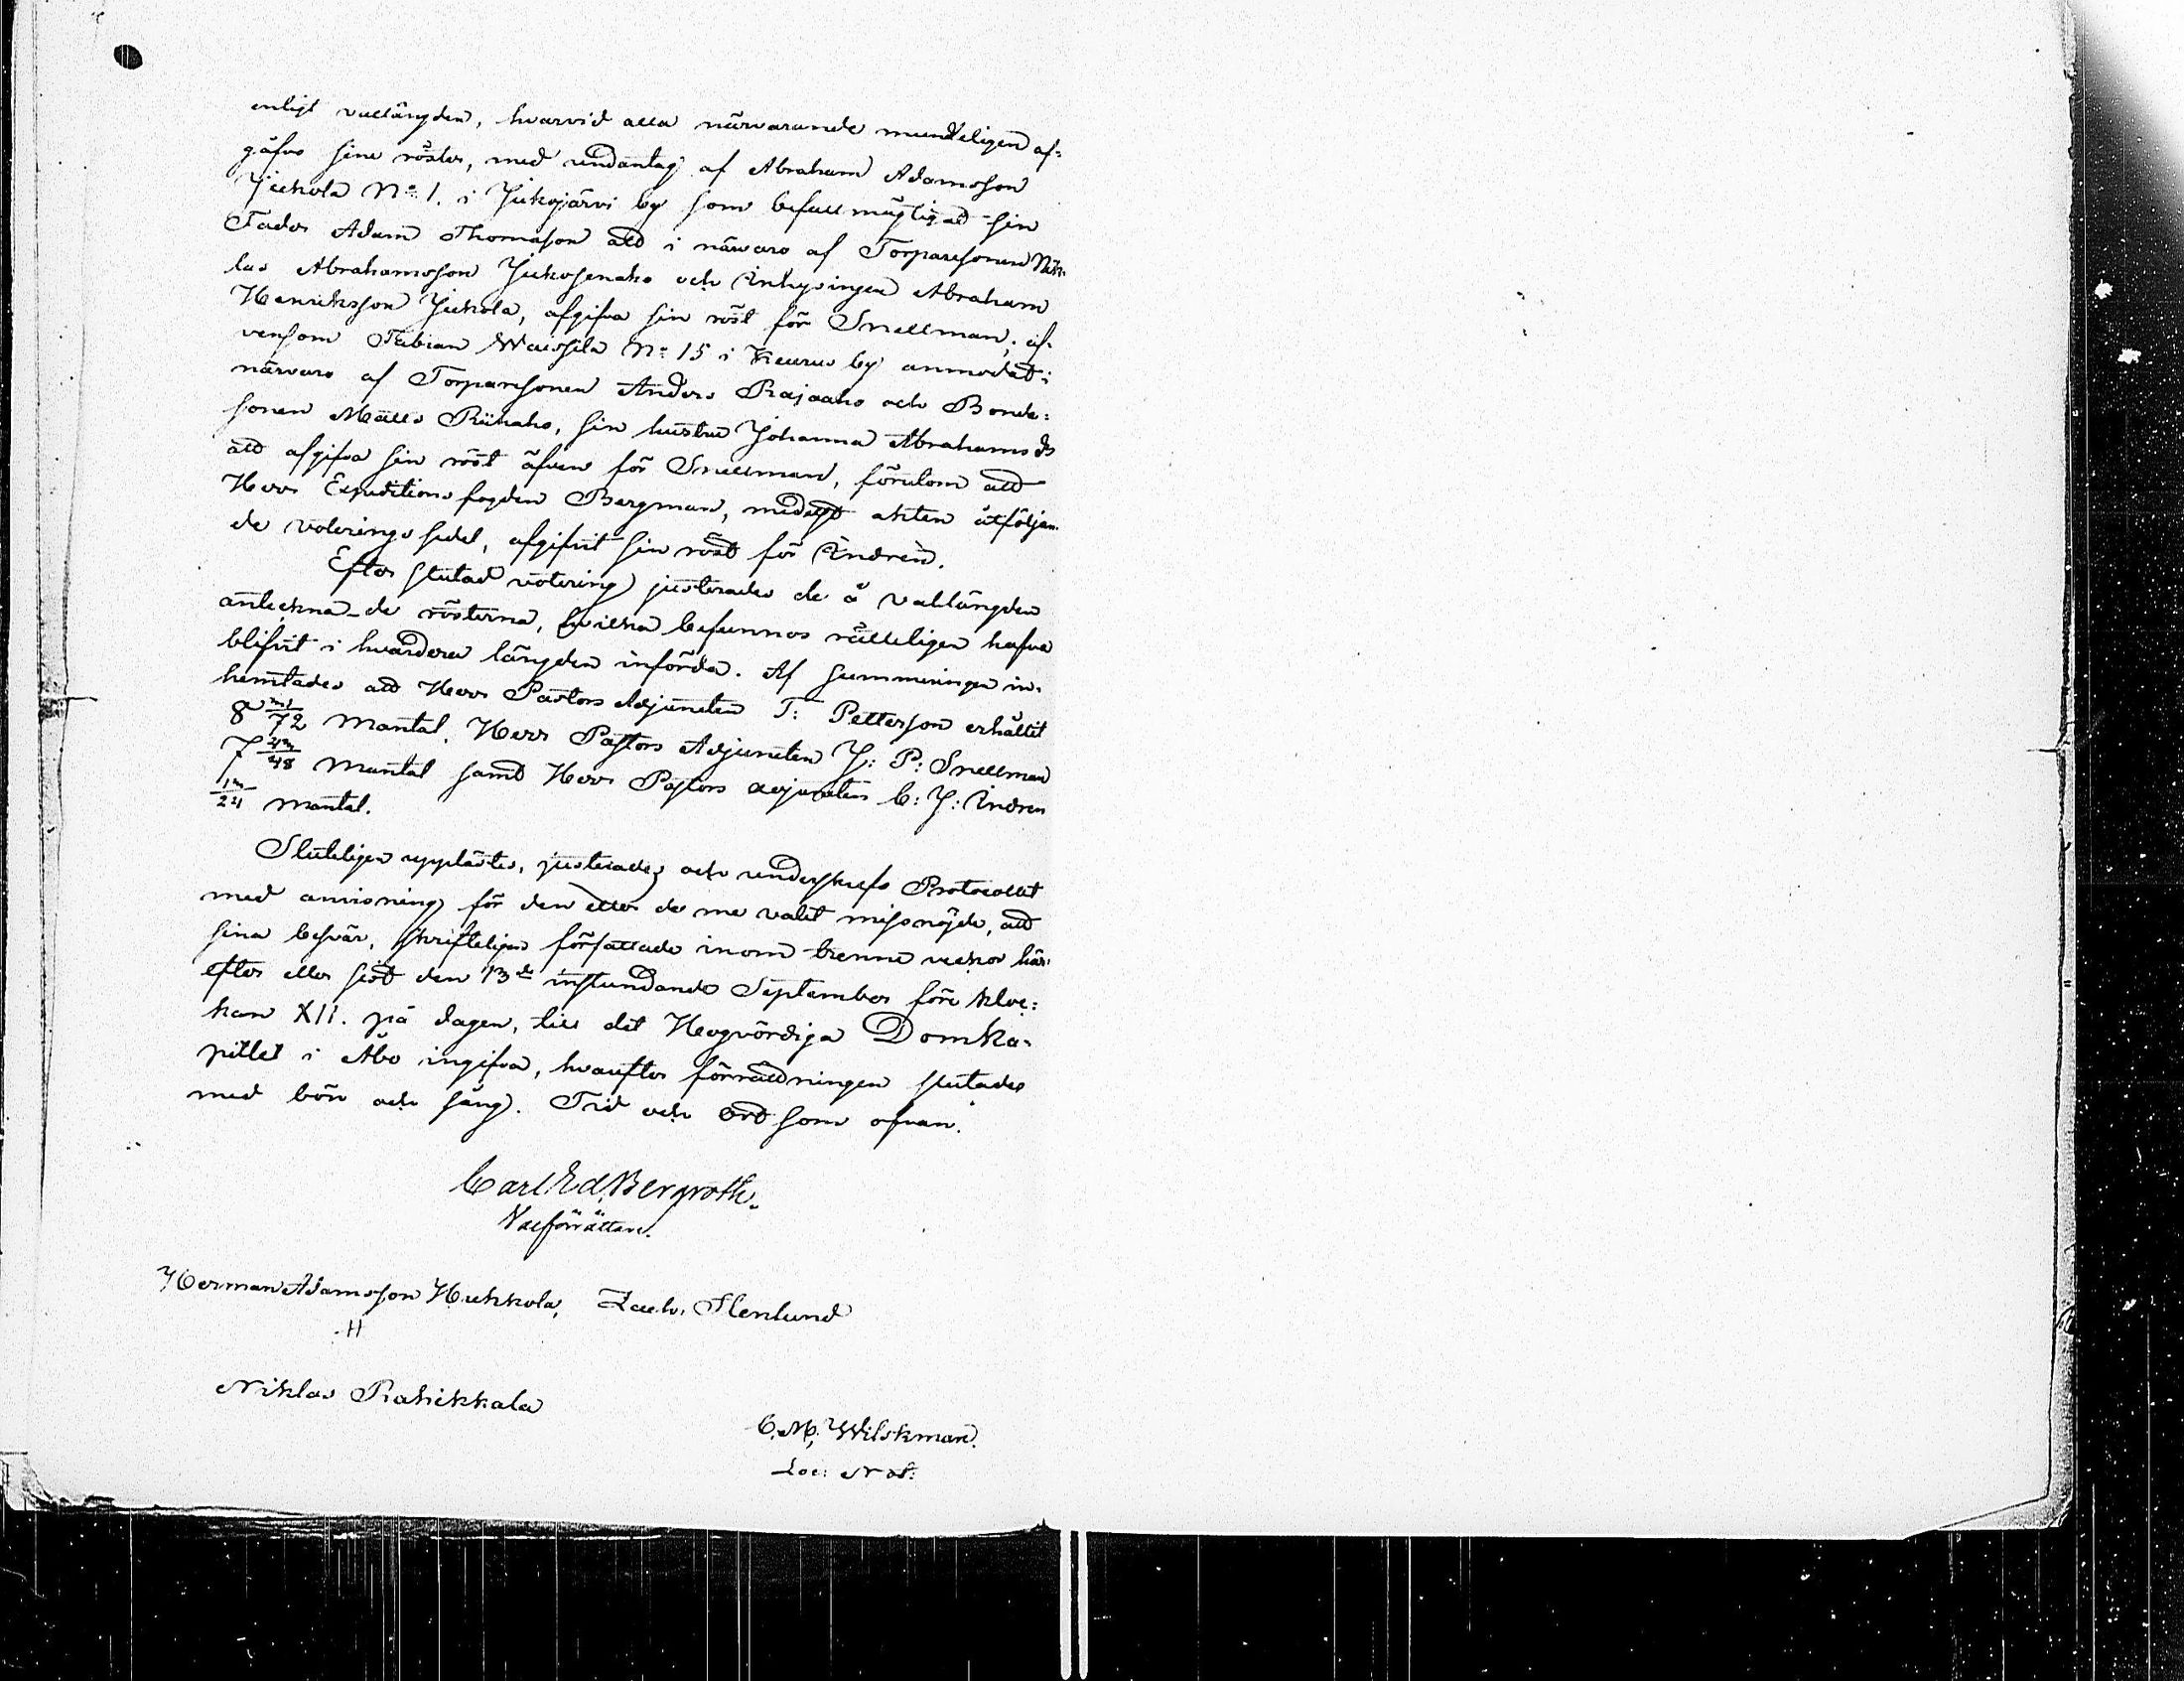 enligt vallängden, hvarvid alla närvarande mundteligen af-
gåfvo sine röster, med undantag af Abraham Adamsson
Jukola No 1. i Jukojärvi by som befullmägtigad sin
Fader Adam Thomasson att i närvaro af Torparesonen Nik-
las Abrahamsson Jukosenaho och Inhysingen Abraham
Henriksson Jukola, afgifva sin röst för Snellman, äf-
vensom Fabian Waissila No 15 i Keuru by anmodat i
närvaro af Torparesonen Anders Rajaaho och Bonde-
sonen Matts Riihaho, sin hustru Johanna Abrahamsdr
att afgifva sin röst äfven för Snellman, förutom att
Herr Expeditionsfogden Bergman, medelst akten åtföljan-
de voteringssedel, afgifvit sin röst för Indrén.
Efter slutad votering justerades de å vallängden
anteckna-de rösterna, hvilka befunnos rätteligen hafva
blifvit i hvardera längden införda. Af summeringen in-
hemtades att Herr Pastors Adjuncten T: Petterson erhållit
8 /72 Mantal, Herr Pastors Adjuncten J: P: Snellman
7 /48 Mantal samt Herr Pastors adjuncten C: J: Indren
1/24 Mantal.
Sluteligen upplästes, justerades och underskrefs Protocollet
med anvisning för den eller de med valet missnöjde, att
sina besvär, skrifteligen författade inom trenne veckor här-
efter eller sist den 13de instundande September före kloc-
kan XII. på dagen, till det Högvördiga Domka-
pitlet i Åbo ingifva, hvarefter förrättningen slutades
med bön och sång. Tid och ort som ofvan.
Carl Ed. Bergroth.
Valförrättare.
Herman Adamsson Huhkola, Zach. Stenlund
H
Niklas Rahikkala
C. M. Wilskman.
Loc: Not: